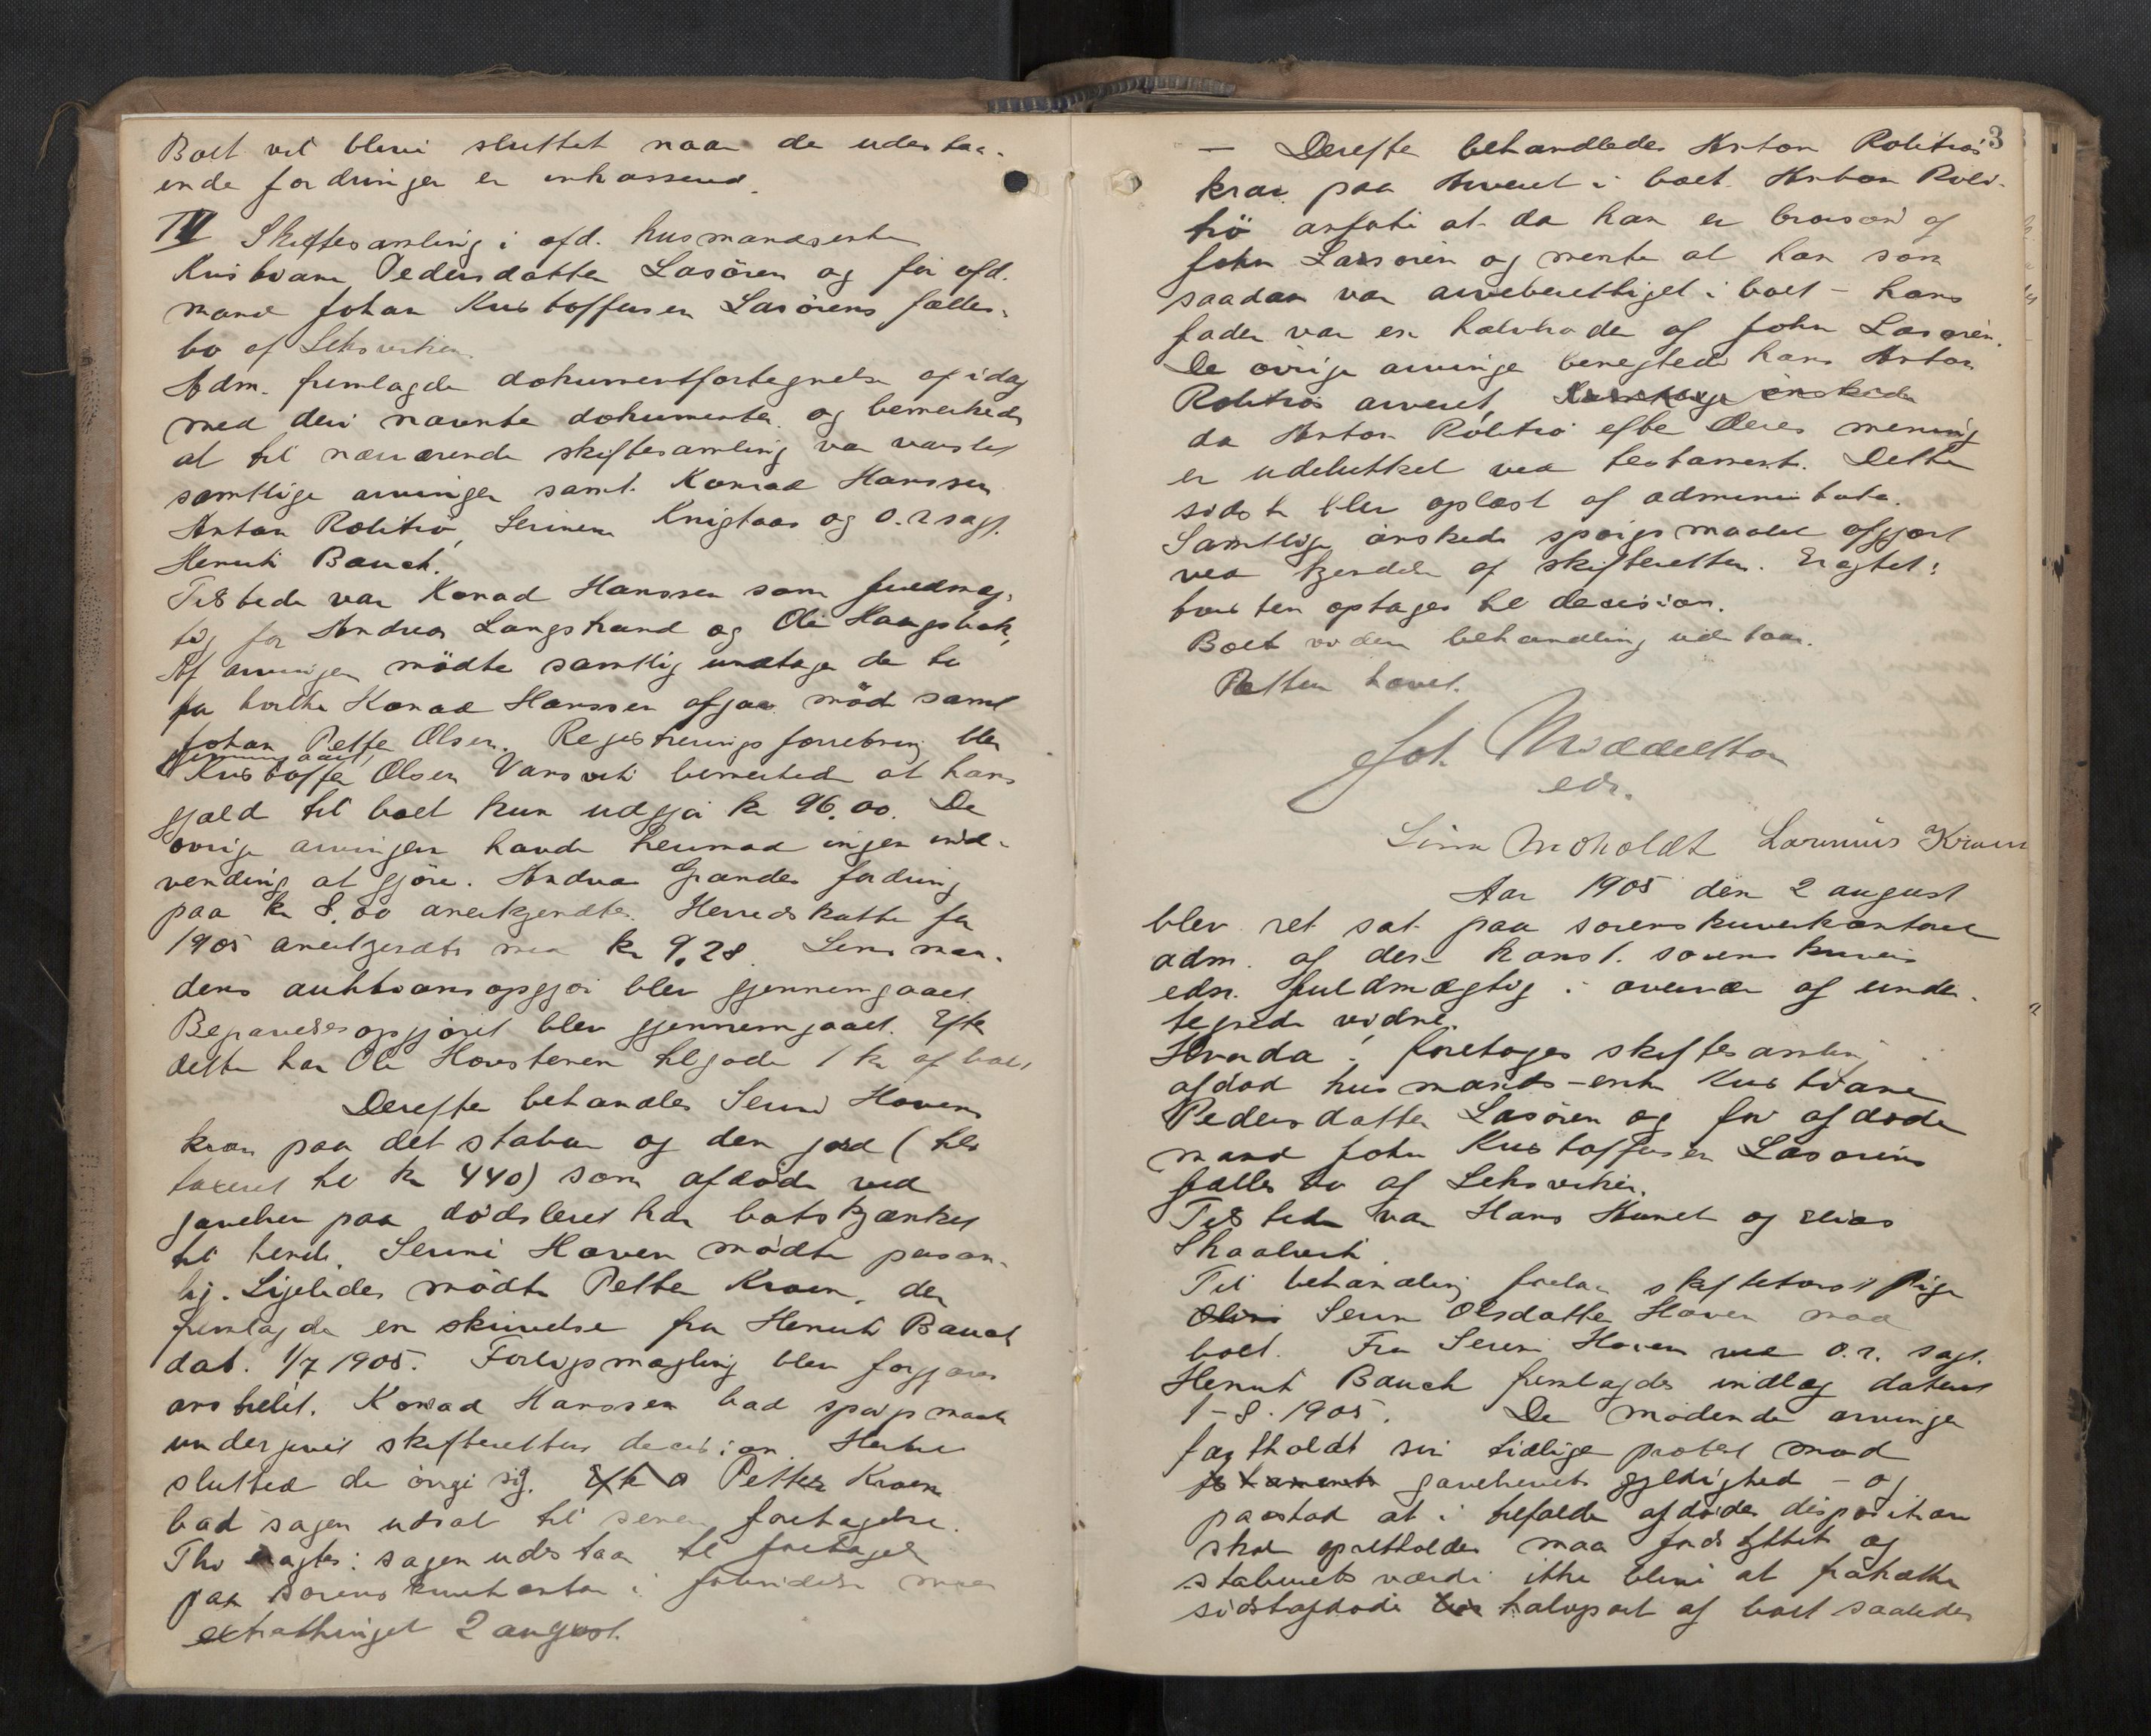 Boet vil blive sluttet naar de udestaa-
ende fordringer er inkasseret.
IV Skiftesamling i afd. husmandsenke
Kristiane Pedersdatter Lasören og før afd.
mand Johan Kristoffersen Lasörens fælles-
bo af Leksviken.
Adm. fremlagde dokumentfortegnelse af idag
med deri nævnte dokumenter og bemerkede
at til nærværende skiftesamling var varslet
samtlige arvinger samt Konrad Hanssen
Anton Rolitrö, Serine og o.r.sagf.
Henrik Bauch.
Tilstede var Konrad Hanssen som fuldmæg-
tig for Andreas Langstrand og Ole Haagsbak,
Af arvinger mödte samtlig undtagen de to
for hvilke Konrad Hanssen afgav möde samt
Johan Petter Olsen. Registreringsforretning blev
gjennemgaaet,
Kristoffer Olsen Vansvik bemerkede at hans
gjæld til boet kun udgjör kr 96,00. De
övrige arvinger havde herimod ingen ind-
vending at gjöre. Andreas Grandes fordring
paa kr 8,00 anerkjendtes. Herredskatten for
1905 anerkjendtes med kr 9,28. Lensman-
dens auktionsopgjör blev gjennemgaaet.
Begravelsesopgjöret blev gjennemgaaet. Efter
dette har Ole tilgode 1 kr af boet
Derefter behandles Serine Hovens
krav paa det stabur og den jord (tils
taxeret til kr 440) som afdöde ved
gavebrev paa dödsleiet har bortskjænket
til hende. Serine Hoven mödte person-
lig. Ligeledes mödte Petter Kroen, der
fremlagde en skrivelse fra Henrik Bauch
dat. 1/7 1905. Forligsmægling blev forgjæves
anstillet. Konrad Hanssen bad spörgsmaalet
undergivet skifterettens decision. Hertil
sluttede de övrige sig. Petter Kroen
bad sagen udsat til senere foretagelse.
Thi eragtes: sagen udstaar til foretagelse
paa sorenskriverkontoret i forbindelse med
extrathinget 2 august.
3
— Derefter behandledes Anton Rolitrös
krav paa Arveret i boet. Anton Roli-
trö anförte at da han er brorsön af
John Lassören og mente at han som
saadan var arveberettiget i boet – hans
fader var en halvbroder af John Lasören.
De övrige arvinger benegtede hans Anton
Rolitrös arveret, önskede
da Anton Rolitrö efter deres mening
er udelukket ved testament. Dette
sidste blev oplæst af administrator.
Samtlige önskede spörgsmaalet afgjort
ved kjendelse af skifteretten. Eragtet:
tvisten optages til decision.
Boet videre behandling udstaar.
Retten hævet.
Joh. Middelthon
eds.
Sivert Moholdt Laurinius Kroen
Aar 1905 den 2 august
blev ret sat paa sorenskriverkontoret
adm. af den konst. sorenskrivers
edsv. fuldmægtig i overvær af under-
tegnede vidner.
Hvorda: foretages skiftesamling i
afdöd husmands-enke Kristiane
Pedersdatter Lasören og för afdöde
mand John Kristoffersen Lasörens
fælles bo af Leksviken.
Tilstede var Hans Hunet og Elias
Til behandling forelaa skiftetvist Pige
Oline Serine Olsdatter Hoven mod
boet. Fra Serine Hoven ved o.r. sagf.
Henrik Bauch fremlagdes indlæg dateret
1-8-1905. De mödende arvinger
fastholdt sin tidligere protest mod
testamentets gavebrevets gyldighed – og
paastod at i tilfælde afdödes disposition
skal opretholdes maa jordstykket og
staburets værdi ikke blive at fratrække
sidstafdöde halvpart af boet saaledes